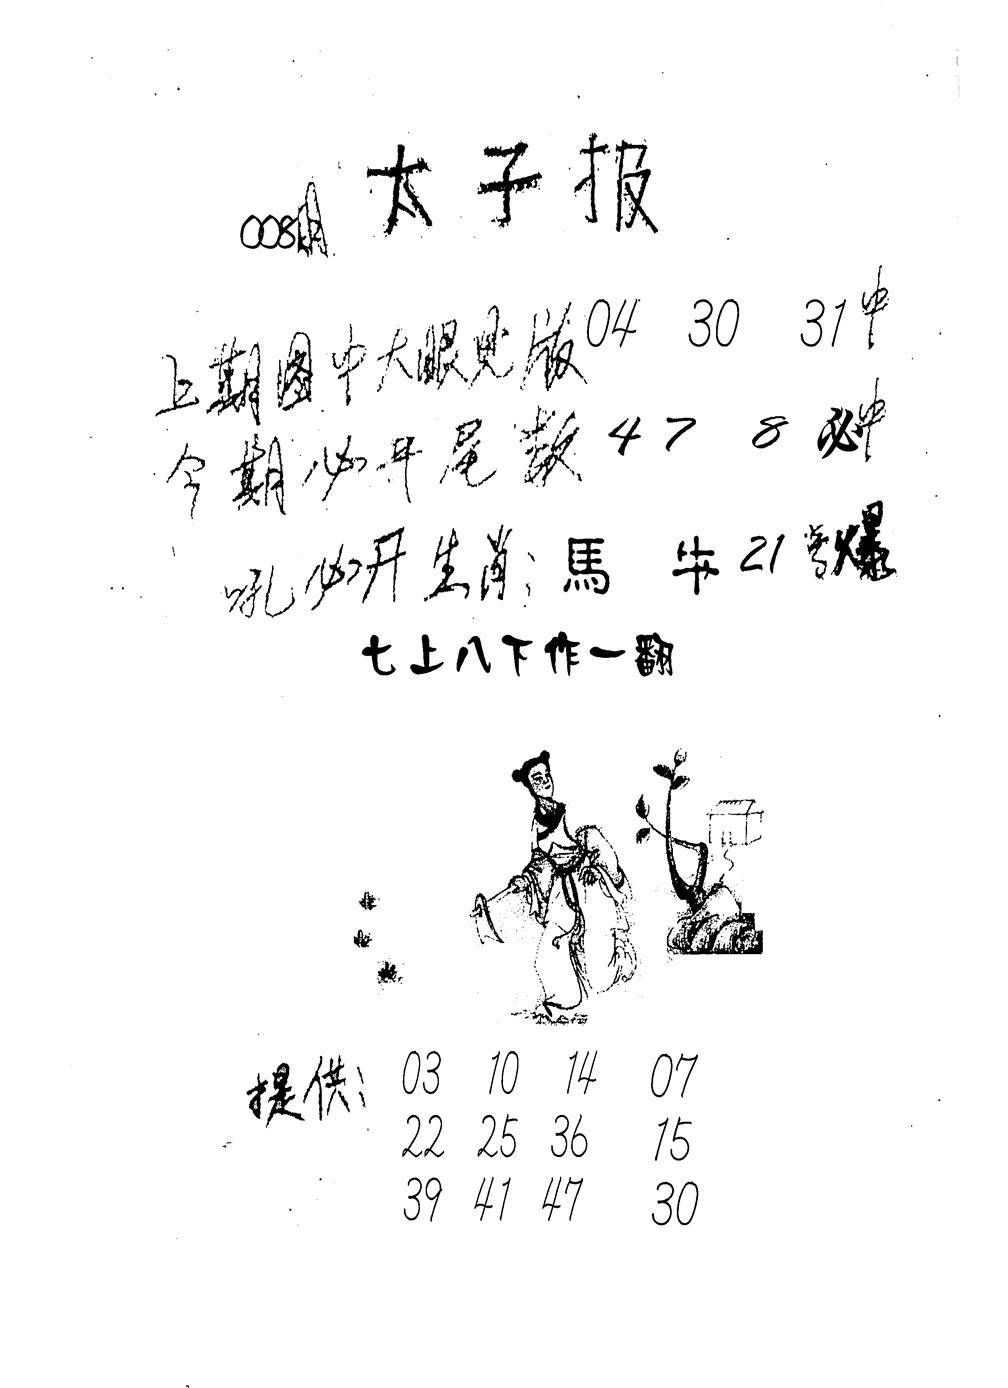 太子报
008期
上期图中大眼见版 04 30 31中
今期必开尾数 4 7 8 必中
吼必开生肖: 馬 牛 21 爆
七上八下作一翻
提供: 03 10 14 07
22 25 36 15
39 41 47 30